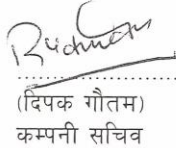 (दिपक गौतम)
कम्पनी सचिव